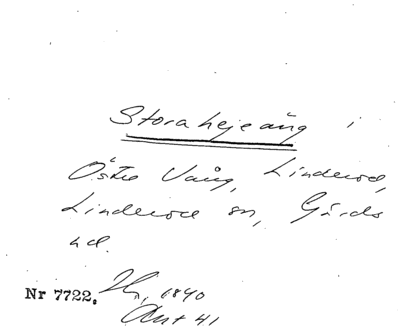 Stora hejeäng i
Östre Vång, Linderöd,
Linderöd sn, Gärds
hd.
Nr 7722. 1840
Akt 41